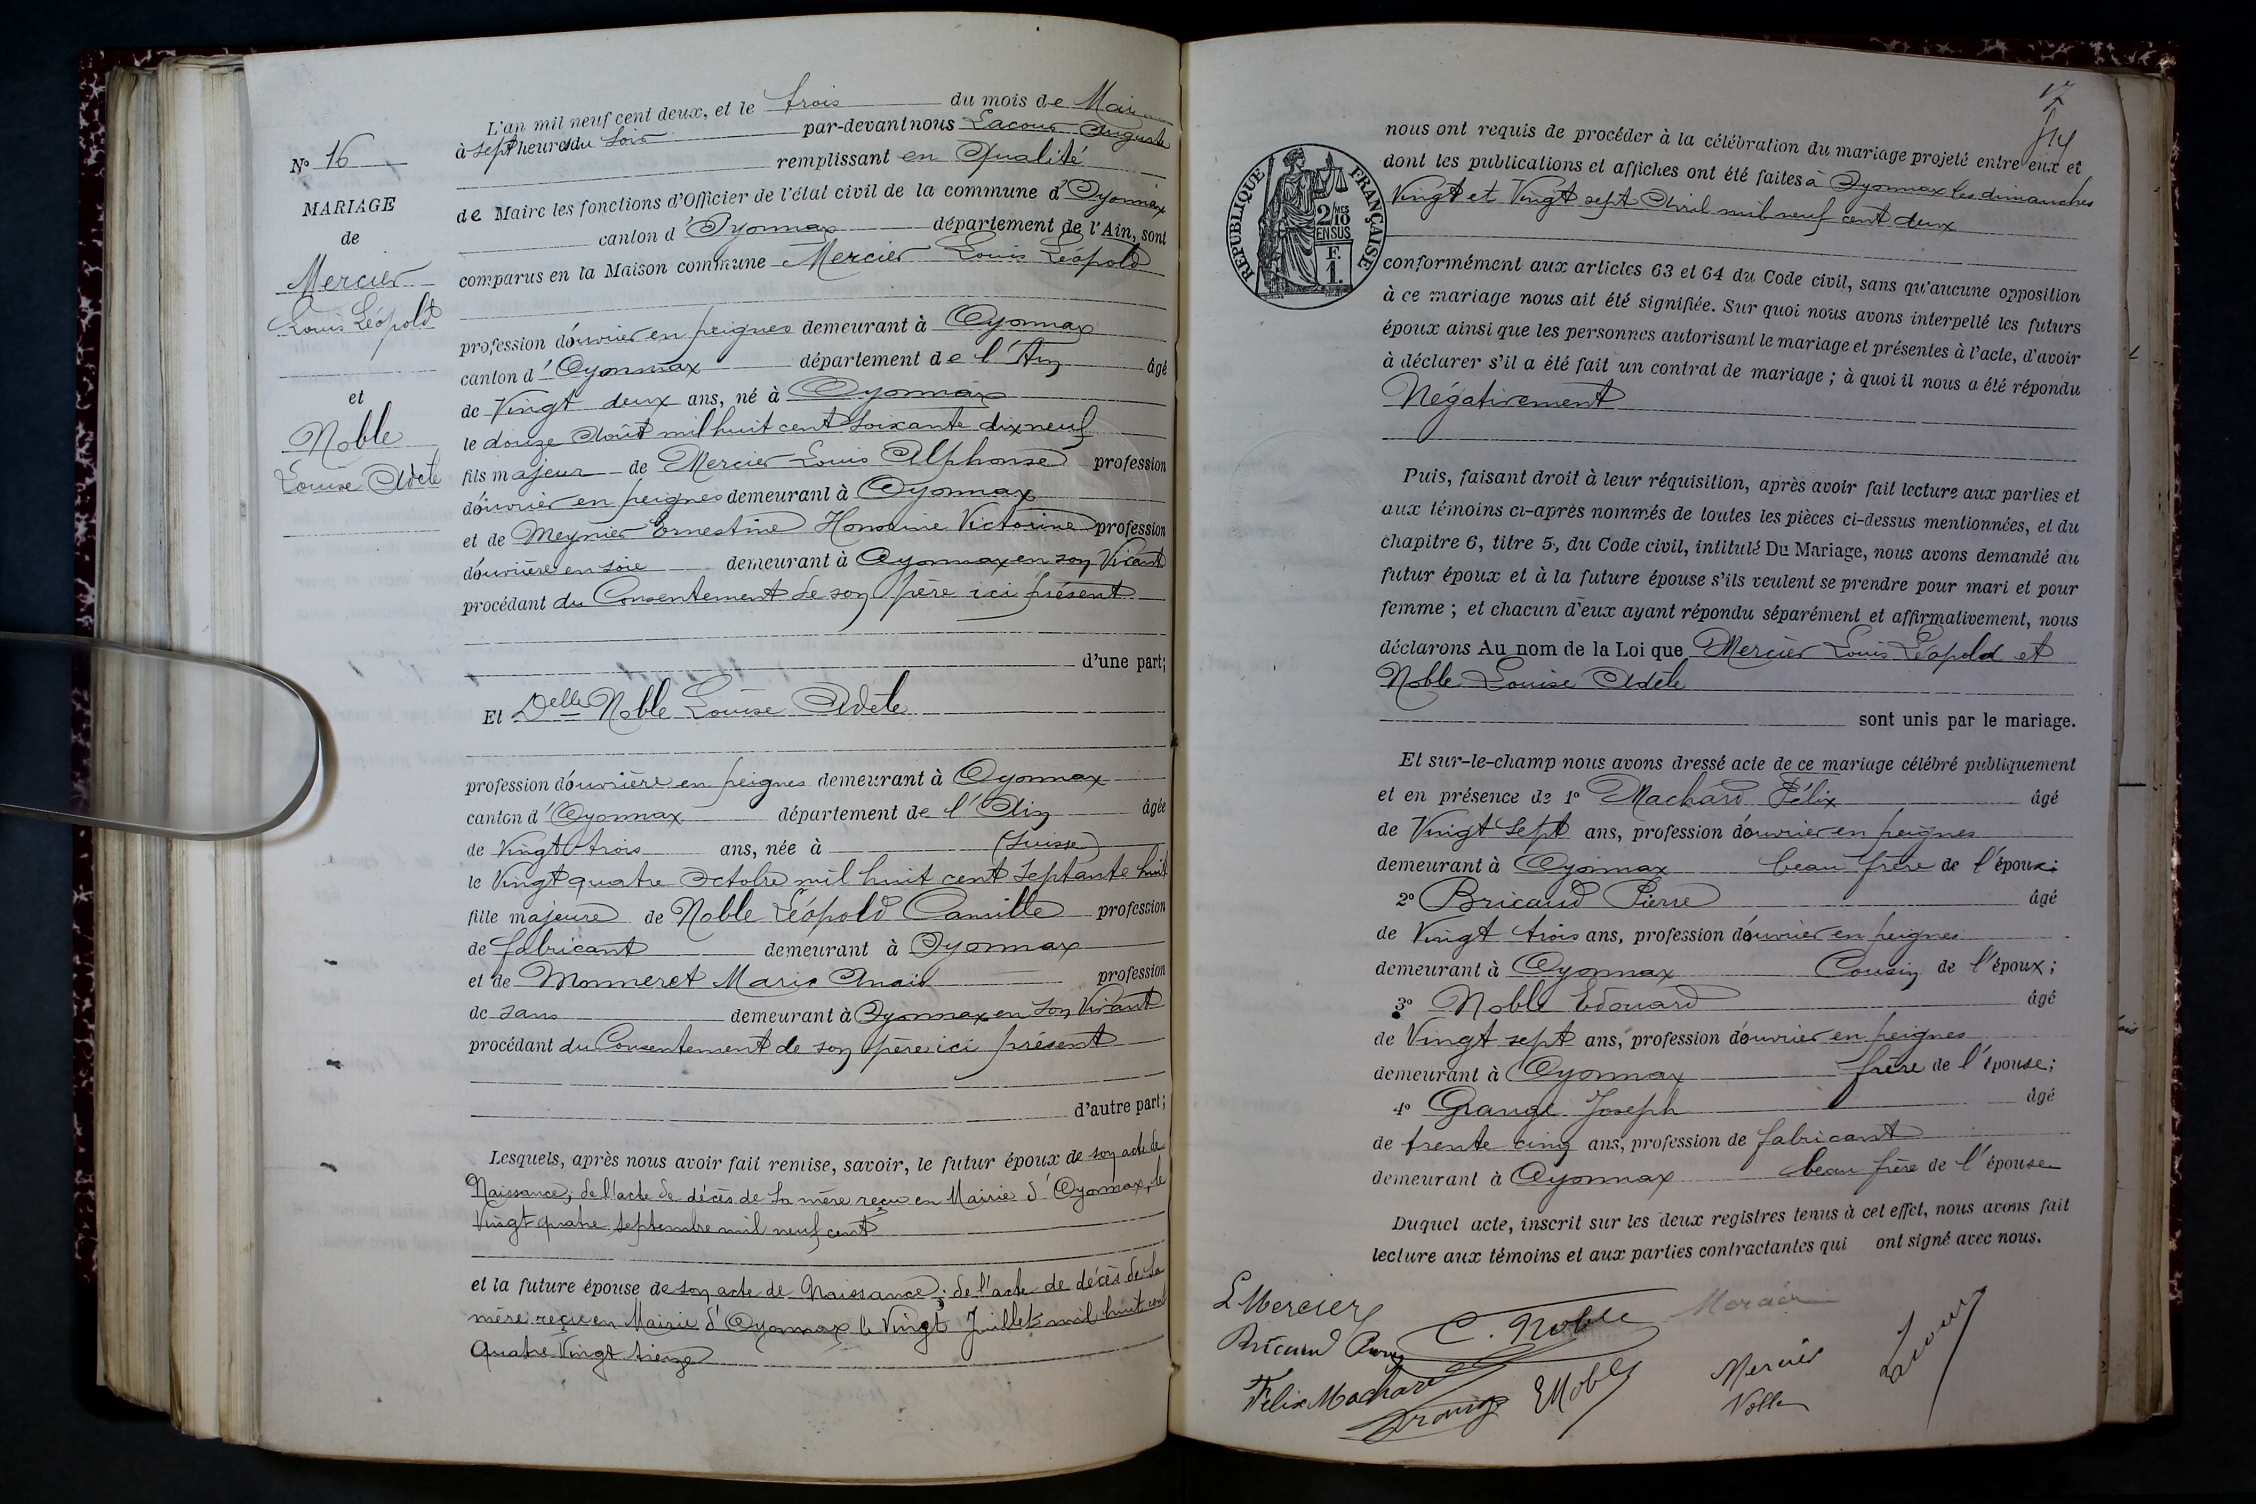 N° 16
MARIAGE
de
Mercier
Louis Léopold
et
Noble
Louise Adèle
L'an mil neuf cent deux, et le trois du mois de Mai
à sept heures du soir par-devant nous Lacour Auguste
remplissant en Qualité
de Maire les fonctions d'Officier de l'état civil de la commune d'Oyonnax
canton d'Oyonnax département de l'Ain, sont
comparus en la Maison commune Mercier Louis Léopold
profession d'ouvrier en peignes demeurant à Oyonnax
canton d'Oyonnax département de l'Ain âgé
de Vingt deux ans, né à Oyonnax
le douze Août mil huit cent soixante dix neuf
fils majeur de Mercier Louis Alphonse profession
d'ouvrier en peignes demeurant à Oyonnax
et de Meynier Ernestine Honorine Victorine profession
d'ouvrière en soie demeurant à Oyonnax en son Vivant
procédant du Consentement de son père ici présent
d'une part;
Et Delle Noble Louise Adèle
profession d'ouvrière en peignes demeurant à Oyonnax
canton d'Oyonnax département de l'Ain âgée
de Vingt trois ans, née à (Suisse)
le Vingt quatre Octobre mil huit cent septante huit
fille majeure de Noble Léopold Camille profession
de fabricant demeurant à Oyonnax
et de Monneret Marie Anaïs profession
de sans demeurant à Oyonnax en son Vivant
procédant du Consentement de son père ici présent
d'autre part;
Lesquels, après nous avoir fait remise, savoir, le futur époux de son acte de
Naissance; de l'acte de décès de sa mère reçu en Mairie d'Oyonnax, le
Vingt quatre septembre mil neuf cent
et la future épouse de son acte de Naissance; de l'acte de décès de sa
mère reçu en Mairie d'Oyonnax le Vingt Juillet mil huit cent
quatre Vingt treize
17
RÉPUBLIQUE FRANÇAISE
2/10 MES
EN SUS
F.
1.
nous ont requis de procéder à la célébration du mariage projeté entre eux et
dont les publications et affiches ont été faites à Oyonnax les dimanches
Vingt et Vingt sept Avril mil neuf cent deux
conformément aux articles 63 et 64 du Code civil, sans qu'aucune opposition
à ce mariage nous ait été signifiée. Sur quoi nous avons interpellé les futurs
époux ainsi que les personnes autorisant le mariage et présentes à l'acte, d'avoir
à déclarer s'il a été fait un contrat de mariage; à quoi il nous a été répondu
Négativement
Puis, faisant droit à leur réquisition, après avoir fait lecture aux parties et
aux témoins ci-après nommés de toutes les pièces ci-dessus mentionnées, et du
chapitre 6, titre 5, du Code civil, intitulé Du Mariage, nous avons demandé au
futur époux et à la future épouse s'ils veulent se prendre pour mari et pour
femme; et chacun d'eux ayant répondu séparément et affirmativement, nous
déclarons Au nom de la Loi que Mercier Louis Léopold et
Noble Louise Adèle
sont unis par le mariage.
Et sur-le-champ nous avons dressé acte de ce mariage célébré publiquement
et en présence de 1° Machard Félix âgé
de Vingt sept ans, profession d'ouvrier en peignes
demeurant à Oyonnax beau frère de l'époux;
2° Bricaud Pierre âgé
de Vingt trois ans, profession d'ouvrier en peignes
demeurant à Oyonnax Cousin de l'époux;
3° Noble Edouard âgé
de Vingt sept ans, profession d'ouvrier en peignes
demeurant à Oyonnax frère de l'épouse;
4° Grange Joseph âgé
de trente cinq ans, profession de fabricant
demeurant à Oyonnax beau frère de l'épouse
Duquel acte, inscrit sur les deux registres tenus à cet effet, nous avons fait
lecture aux témoins et aux parties contractantes qui ont signé avec nous.
L Mercier
C. Noble
Mercier
Bricaud
Félix Machard
Grange
E Noble
Mercier
Noble
Lacour